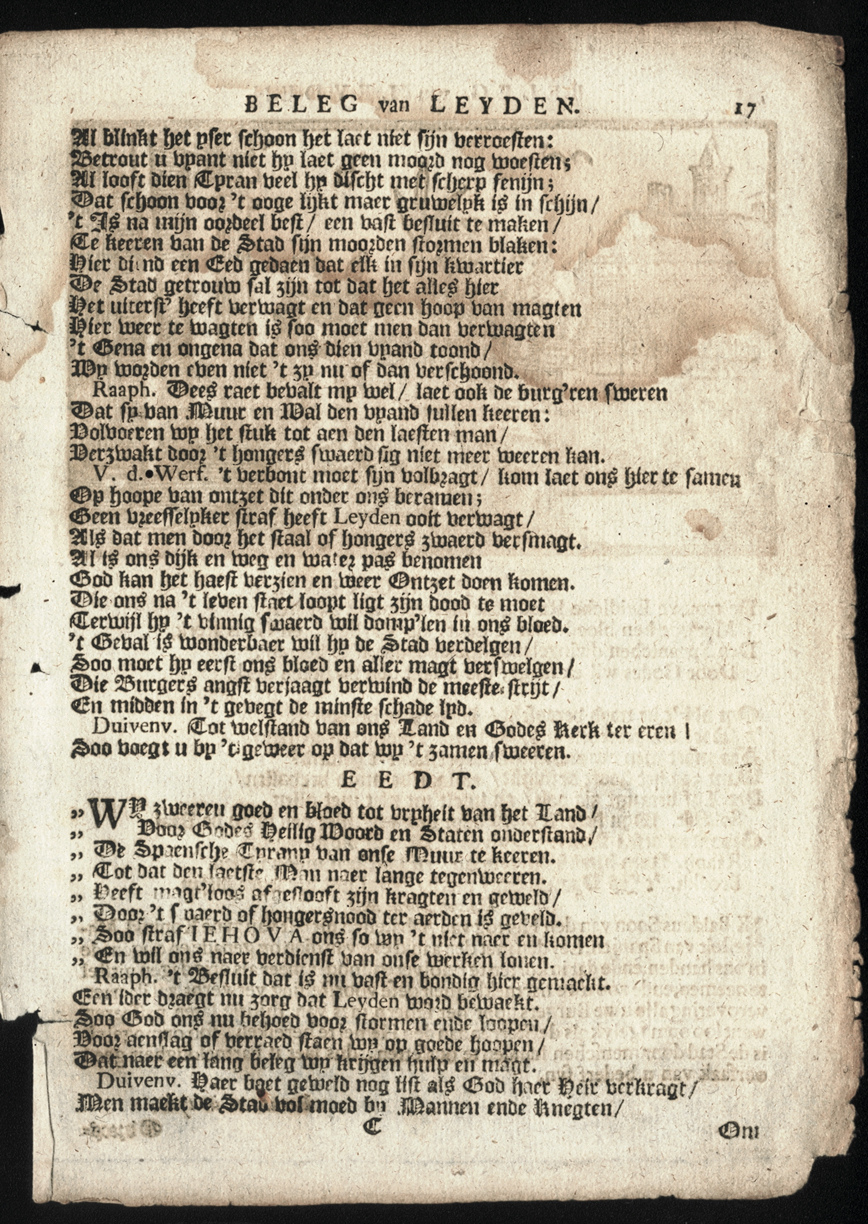 BELEG van LEYDEN. 17
Al blinkt het yser schoon het laet niet sijn verroesten:
Betrout u vyant niet hy laet geen moord nog woesten;
Al looft dien Tyran veel hy discht met scherp fenijn;
Dat schoon voor 't ooge lijkt maer gruwelyk is in schijn/
't Is na mijn oordeel best/ een vast besluit te maken/
Te keeren van de Stad sijn moorden stormen blaken:
Hier diend een Eed gedaen dat elk in sijn kwartier
De Stad getrouw sal zijn tot dat het alles hier
Het uiterst' heeft verwagt en dat geen hoop van magten
Hier weer te wagten is soo moet men dan verwagten
't Gena en ongena dat ons dien vyand toond/
Wy worden even niet 't zy nu of dan verschoond.
Raaph. Dees raet bevalt my wel/ laet ook de burg'ren sweren
Dat sy van Muur en Wal den vyand sullen keeren:
Volvoeren wy het stuk tot aen den laesten man/
Verzwakt door 't hongers swaerd sig niet meer weeren kan.
V. d. Werf. 't verbont moet sijn volbragt/ kom laet ons hier te samen
Op hoope van ontzet dit onder ons beramen;
Geen vreesselyker straf heeft Leyden ooit verwagt/
Als dat men door het staal of hongers zwaerd versmagt.
Al is ons dijk en weg en water pas benomen
God kan het haest verzien en weer Ontzet doen komen.
Die ons na 't leven staet loopt ligt zijn dood te moet
Terwijl hy 't vinnig swaerd wil domp'len in ons bloed.
't Geval is wonderbaer wil hy de Stad verdelgen/
Soo moet hy eerst ons bloed en aller magt verswelgen/
Die Burgers angst verjaagt verwind de meeste strijt/
En midden in 't gevegt de minste schade lyd.
Duivenv. Tot welstand van ons Land en Godes Kerk ter eren!
Soo voegt u by 't geweer op dat wy 't zamen sweeren.
EEDT.
„ WY zweeren goed en bloed tot vryheit van het Land/
„ Door Godes Heilig Woord en Staten onderstand/
„ De Spaensche Tyrany van onse Muur te keeren.
„ Tot dat den laetste Man naer lange tegenweeren.
„ Heeft magt'loos afgeslooft zijn kragten en geweld/
„ Door 't swaerd of hongersnood ter aerden is geveld.
„ Soo straf IEHOVA ons so wy 't niet naer en komen
„ En wil ons naer verdienst van onse werken lonen.
Raaph. 't Besluit dat is nu vast en bondig hier gemaekt.
Een ider draegt nu zorg dat Leyden word bewaekt.
Soo God ons nu behoed voor stormen ende loopen/
Voor aenslag of verraed staen wy op goede hoopen/
Dat naer een lang beleg wy krijgen hulp en magt.
Duivenv. Haer baet geweld nog list als God haer Heir verkragt/
Men maekt de Stad vol moed by Mannen ende Knegten/
C Om